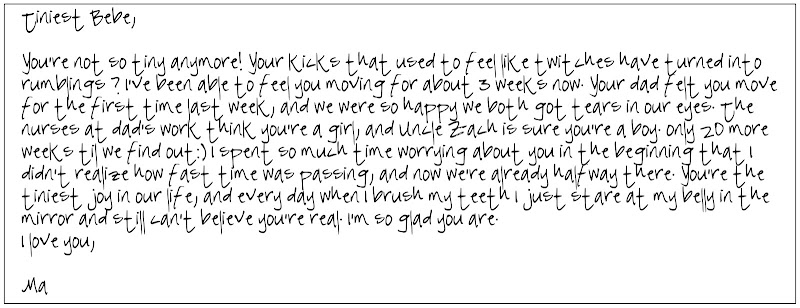 Tiniest Bebe,
You're not so tiny anymore! Your kicks that used to feel like twitches have turned into
rumblings ? I've been able to feel you moving for about 3 weeks now. Your dad felt you move
for the first time last week, and we were so happy we both got tears in our eyes. The
nurses at dad's work think you're a girl, and Uncle Zach is sure you're a boy. Only 20 more
weeks til we find out:) I spent so much time worrying about you in the beginning that I
didn't realize how fast time was passing, and now we're already halfway there. You're the
tiniest joy in our life, and every day when I brush my teeth I just stare at my belly in the
mirror and still can't believe you're real. I'm so glad you are.
I love you,
Ma